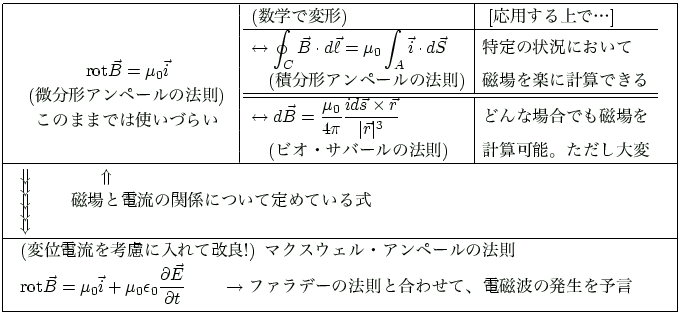 rot$\vec{B} = \mu_0 \vec{i}$
(微分形アンペールの法則)
このままでは使いづらい
(数学で変形)
[応用する上で…]
$\leftrightarrow \oint_C \vec{B} \cdot d\vec{\ell} = \mu_0 \int_A \vec{i} \cdot d\vec{S}$
(積分形アンペールの法則)
特定の状況において
磁場を楽に計算できる
$\leftrightarrow d\vec{B} = \frac{\mu_0}{4\pi} \frac{i d\vec{s} \times \vec{r}}{|\vec{r}|^3}$
(ビオ・サバールの法則)
どんな場合でも磁場を
計算可能。ただし大変
⇓ ⇑
磁場と電流の関係について定めている式
(変位電流を考慮に入れて改良!) マクスウェル・アンペールの法則
rot$\vec{B} = \mu_0 \vec{i} + \mu_0 \epsilon_0 \frac{\partial \vec{E}}{\partial t}$ → ファラデーの法則と合わせて、電磁波の発生を予言